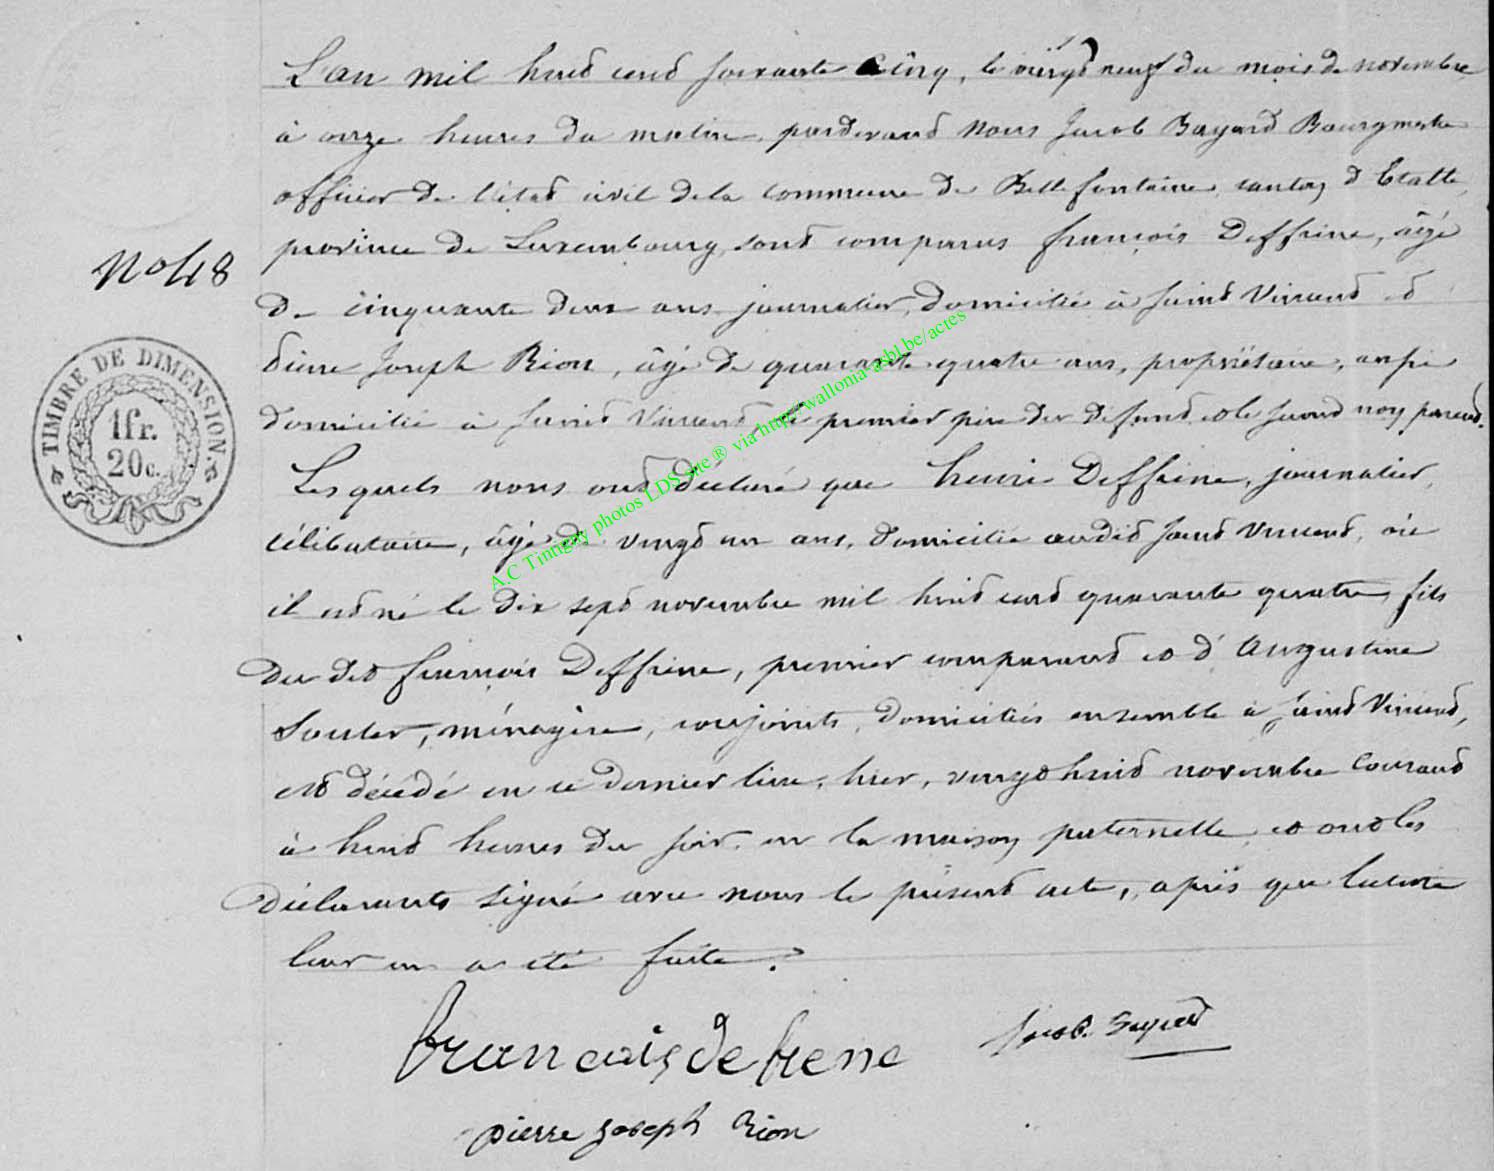 L'an mil huit cent soixante cinq, le vingt neuf du mois de novembre
à onze heures du matin, pardevant Nous Jacob Bayard Bourgmestre
officier de l'état civil de la commune de Bellefontaine, canton d'Etalle,
province de Luxembourg, sont comparus françois Deffrene, âgé
N° 48
de cinquante deux ans, journalier, domicilié à Saint Vincent et
Pierre Joseph Rion, âgé de quarante quatre ans, propriétaire, aussi
domicilié à Saint Vincent, le premier père du défunt et le second non parent.
TIMBRE DE DIMENSION.
1fr.
20c.
Lesquels nous ont déclaré que henri Deffrene, journalier,
célibataire, âgé de vingt un ans, domicilié audit Saint Vincent, où
il est né le dix sept novembre mil huit cent quarante quatre, fils
du dit françois Deffrene, premier comparant et d'Augustine
Souler, ménagère, conjoints, domiciliés ensemble à Saint Vincent,
est décédé en ce dernier lieu, hier, vingt huit novembre courant
à huit heures du soir, en la maison paternelle, et ont les
déclarants signé avec nous le présent acte, après que lecture
leur en a été faite.
francois defrene
Jacob Bayard
pierre joseph Rion
A.C Tintigny photos LDS site ® via http://wallonia-asbl.be/actes